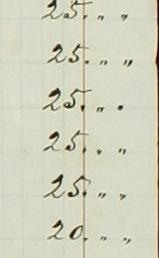 25. " "
25. " "
25. " "
25. " "
25. " "
20. " "